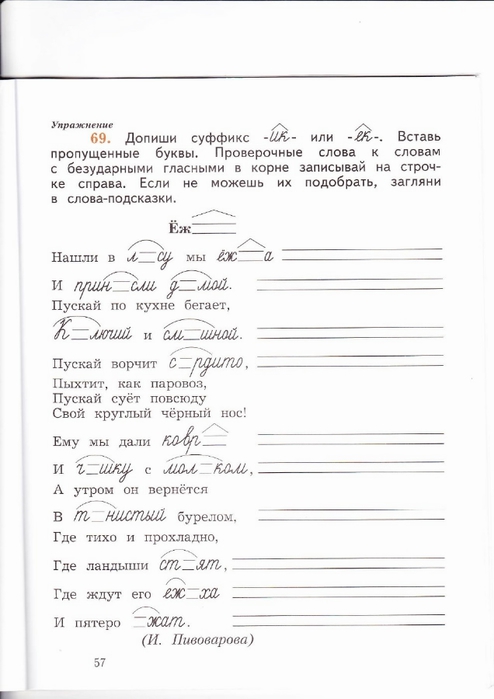 Упражнение
69. Допиши суффикс -ик- или -ек-. Вставь
пропущенные буквы. Проверочные слова к словам
с безударными гласными в корне записывай на строч-
ке справа. Если не можешь их подобрать, загляни
в слова-подсказки.
Ёж____
Нашли в л_су мы ёж__а
И прин_сли д_мой.
Пускай по кухне бегает,
К_лючий и см_шной.
Пускай ворчит с_рдито,
Пыхтит, как паровоз,
Пускай суёт повсюду
Свой круглый чёрный нос!
Ему мы дали ковр__
И ч_шку с мол_ком,
А утром он вернётся
В т_нистый бурелом,
Где тихо и прохладно,
Где ландыши ст_ят,
Где ждут его еж_ха
И пятеро _жат.
(И. Пивоварова)
57